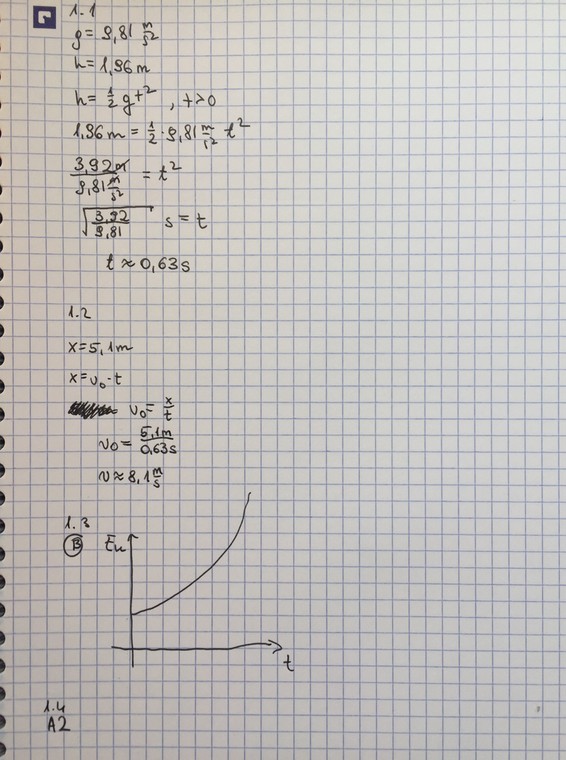 1.1
g = 9,81 m/s²
h = 1,96 m
h = 1/2 g t² , t > 0
1,96 m = 1/2 · 9,81 m/s² t²
3,92 m / 9,81 m/s² = t²
√(3,92/9,81) s = t
t ≈ 0,63 s
1.2
x = 5,1 m
x = v₀ · t
v₀ = x/t
v₀ = 5,1 m / 0,63 s
v ≈ 8,1 m/s
1.3
B
Eₖ
t
1.4
A2